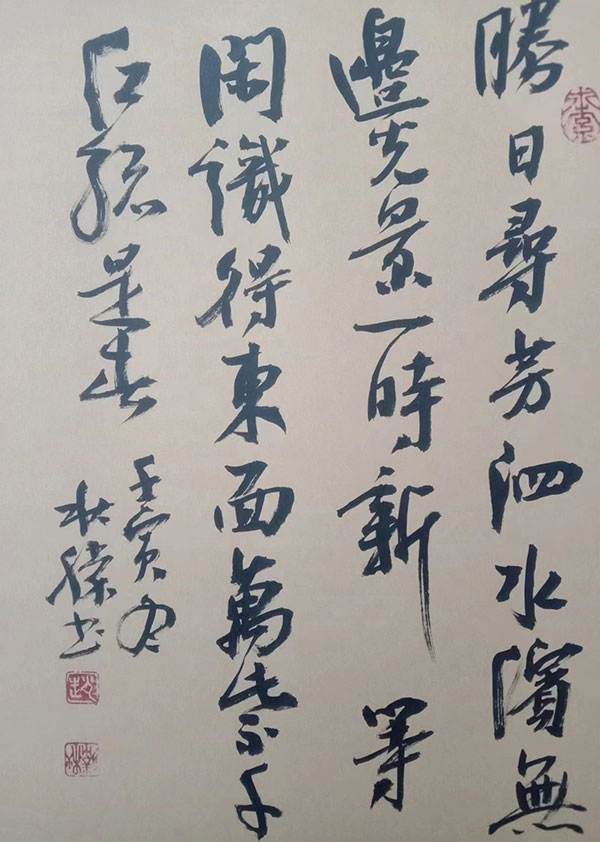 勝日尋芳泗水濱無
邊光景一時新等
閑識得東面萬紫千
紅總是春
壬寅冬
秋書